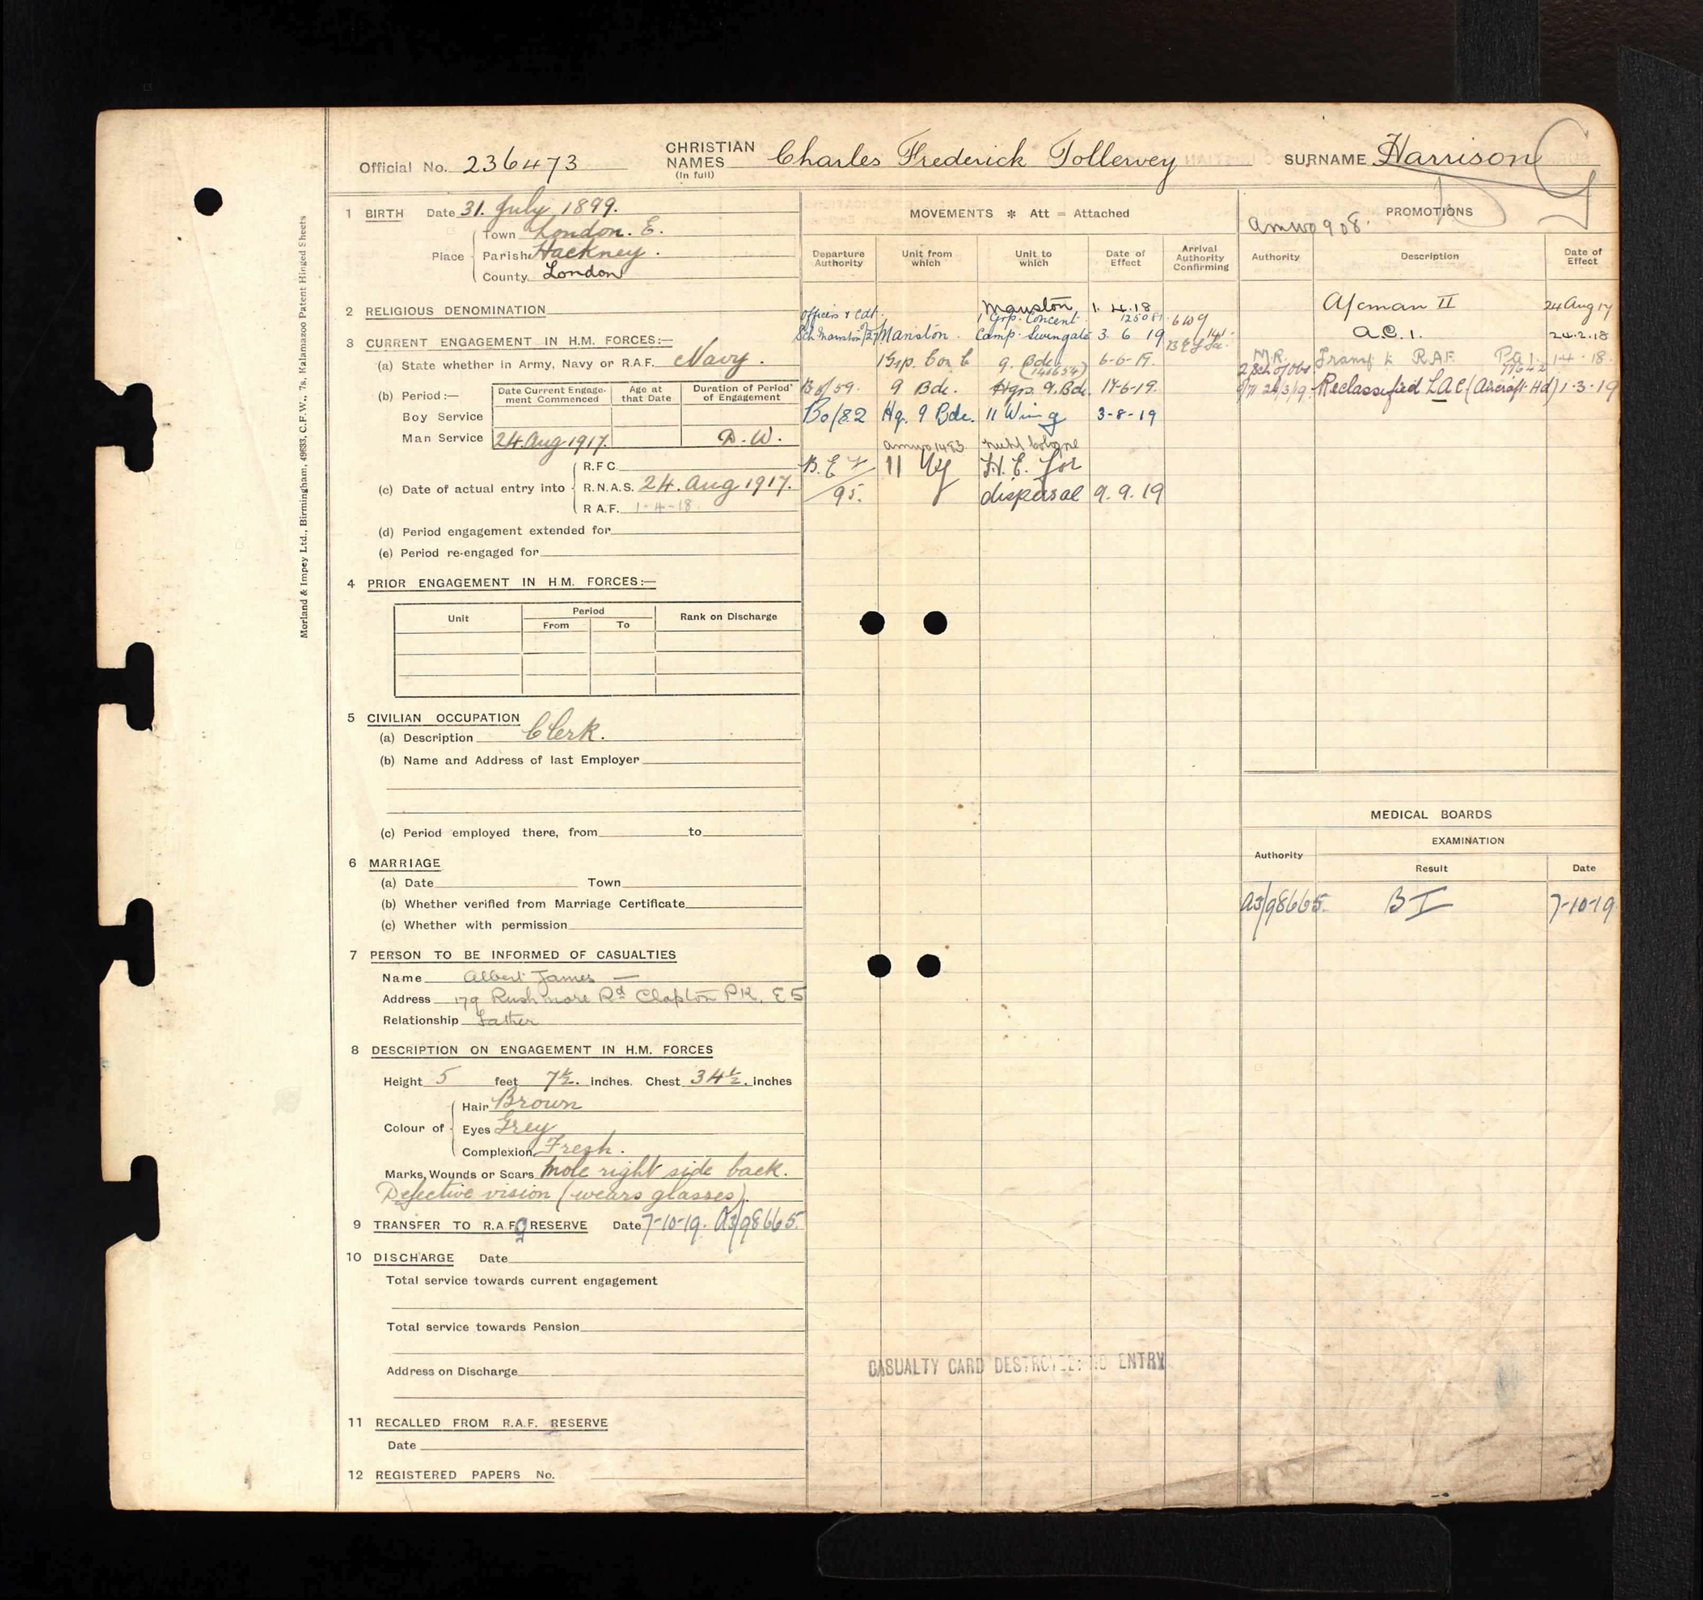 Official No. 236473
CHRISTIAN NAMES (In full) Charles Frederick Tollervey
SURNAME Harrison
Morland & Impey Ltd., Birmingham, 49683, C.F.W., 7s, Kalamazoo Patent Hinged Sheets
1 BIRTH Date 31. July 1899.
Place Town London. E.
Parish Hackney.
County London
2 RELIGIOUS DENOMINATION
3 CURRENT ENGAGEMENT IN H.M. FORCES:—
(a) State whether in Army, Navy or R.A.F. Navy.
(b) Period:— Date Current Engagement Commenced Age at that Date Duration of Period of Engagement
Boy Service
Man Service 24 Aug 1917. D.W.
(c) Date of actual entry into R.F.C.
R.N.A.S. 24. Aug 1917.
R.A.F. 1-4-18.
(d) Period engagement extended for
(e) Period re-engaged for
4 PRIOR ENGAGEMENT IN H.M. FORCES:—
Unit Period Rank on Discharge
From To
5 CIVILIAN OCCUPATION
(a) Description Clerk.
(b) Name and Address of last Employer
(c) Period employed there, from to
6 MARRIAGE
(a) Date Town
(b) Whether verified from Marriage Certificate
(c) Whether with permission
7 PERSON TO BE INFORMED OF CASUALTIES
Name Albert James —
Address 179 Rushmore Rd Clapton PK. E5
Relationship Father
8 DESCRIPTION ON ENGAGEMENT IN H.M. FORCES
Height 5 feet 7½. inches. Chest 34½. inches
Colour of Hair Brown
Eyes Grey
Complexion Fresh.
Marks, Wounds or Scars Mole right side back.
Defective vision (wears glasses).
9 TRANSFER TO R.A.F. RESERVE Date 7-10-19. A3/98665.
10 DISCHARGE Date
Total service towards current engagement
Total service towards Pension
Address on Discharge
11 RECALLED FROM R.A.F. RESERVE
Date
12 REGISTERED PAPERS No.
MOVEMENTS * Att = Attached
Departure Authority Unit from which Unit to which Date of Effect Arrival Authority Confirming
Manston, 1.4.18
1 Grp. Concent. 125081
Manston. Camp. Swingate 3 6 19
9. Bde (146654) 6-6-19.
Bo/59. 9 Bde. Hqrs. 9. Bde. 17-6-19.
Bo/82 Hq. 9 Bde. 11 Wing 3-8-19
B.E.F/95. 11 Wg H.E. for
disposal 9.9.19
CASUALTY CARD DESTROYED: NO ENTRY
PROMOTIONS
amwo 908.
Authority Description Date of Effect
A/cman II 24 Aug 17
A.C.1. 24.2.18
M.R. Transf to RAF 1-4-18.
Reclassified LAC (Aircraft Hd) 1-3-19
MEDICAL BOARDS
EXAMINATION
Authority Result Date
A3/98665. BI 7-10-19